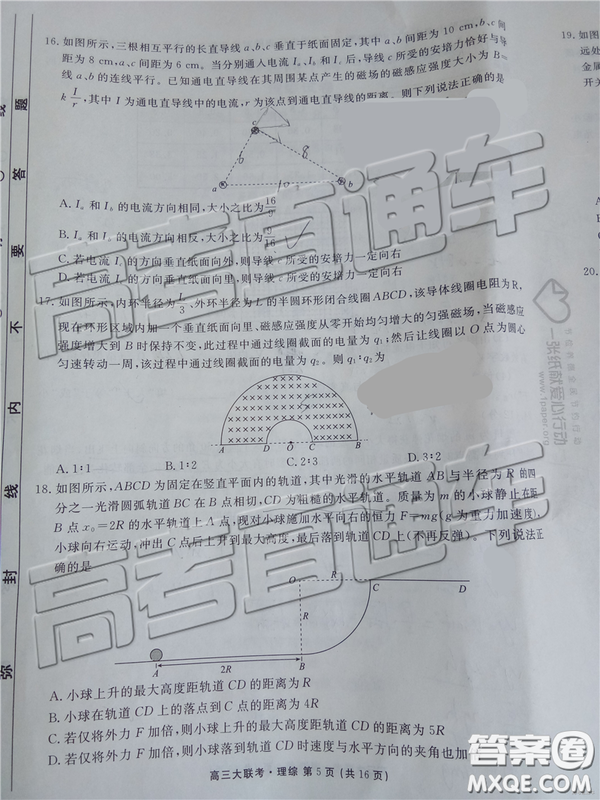 16. 如图所示,三根相互平行的长直导线a、b、c垂直于纸面固定,其中a、b间距为10 cm,b、c间
距为8 cm,a、c间距为6 cm。当分别通入电流
线a、b的连线平行。已知通电直导线在其周围某点产生的磁场的磁感应强度大小为B=
k I/r,其中I为通电直导线中的电流,r为该点到通电直导线的距离。则下列说法正确的是
c
8
a
10
b
A. 和 的电流方向相同,大小之比为16/9
B. 和 的电流方向相反,大小之比为9/16
C. 若电流 的方向垂直纸面向外,则导线c所受的安培力一定向右
D. 若电流 的方向垂直纸面向里,则导线c所受的安培力一定向右
17. 如图所示,内环半径为L/3、外环半径为L的半圆环形闭合线圈ABCD,该导体线圈电阻为R,
现在环形区域内加一个垂直纸面向里、磁感应强度从零开始均匀增大的匀强磁场,当磁感应
强度增大到B时保持不变,此过程中通过线圈截面的电量为q₁;然后让线圈以O点为圆心
匀速转动一周,该过程中通过线圈截面的电量为q₂。则q₁:q₂为
A D O C B
A. 1:1 B. 1:2 C. 2:3 D. 3:2
18. 如图所示,ABCD为固定在竖直平面内的轨道,其中光滑的水平轨道AB与半径为R的四
分之一光滑圆弧轨道BC在B点相切,CD为粗糙的水平轨道。质量为m的小球静止在距
B点x₀=2R的水平轨道上A点,现对小球施加水平向右的恒力F=mg(g为重力加速度),
小球向右运动,冲出C点后上升到最大高度,最后落到轨道CD上(不再反弹)。下列说法正
确的是
O R C D
R
A 2R B
A. 小球上升的最大高度距轨道CD的距离为R
B. 小球在轨道CD上的落点到C点的距离为4R
C. 若仅将外力F加倍,则小球上升的最大高度距轨道CD的距离为5R
D. 若仅将外力F加倍,则小球落到轨道CD时速度与水平方向的夹角也加
高三大联考·理综 第5页(共16页)
题
答
要
不
内
线
封
弥
19. 如
远处
金属
开关
20.
高考直通车
高考直通车
一张纸献爱心行动
www.1paper.org
答案圈
MXQE.COM